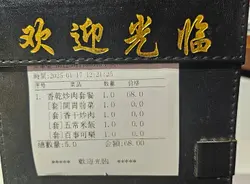 欢迎光临
時間:2025-01-17 12:21:25
序號 菜品 數量 合計
1. 香乾炒肉套餐 1.0 68.0
[套]開胃前菜 1.0 0.0
[套]香干炒肉 1.0 0.0
[套]五常米飯 1.0 0.0
[套]百事可樂 1.0 0.0
總數量:5.0 總額:68.00
**** 歡迎光臨 ****